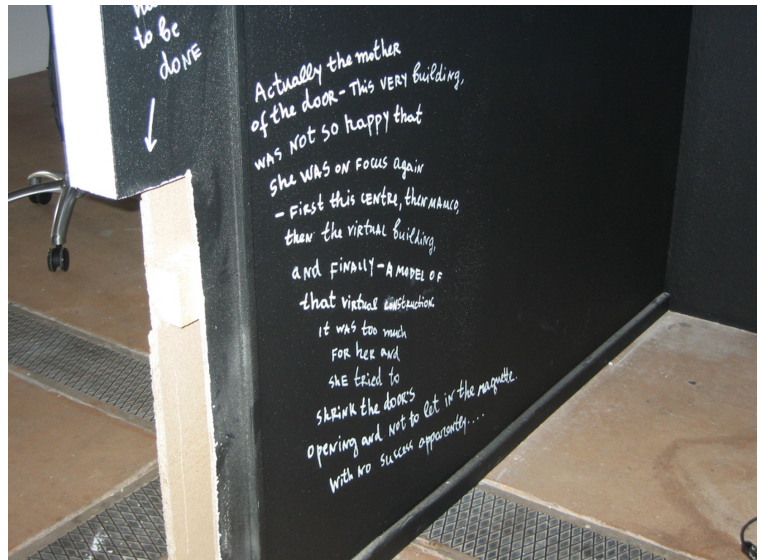 to be
done
Actually the mother
of the door - This very building,
was not so happy that
she was on focus again
- First this centre, then MAMCO,
then the virtual building,
and finally - A model of
that virtual construction
it was too much
for her and
she tried to
shrink the door's
opening and not to let in the maquette.
With no success apparently....